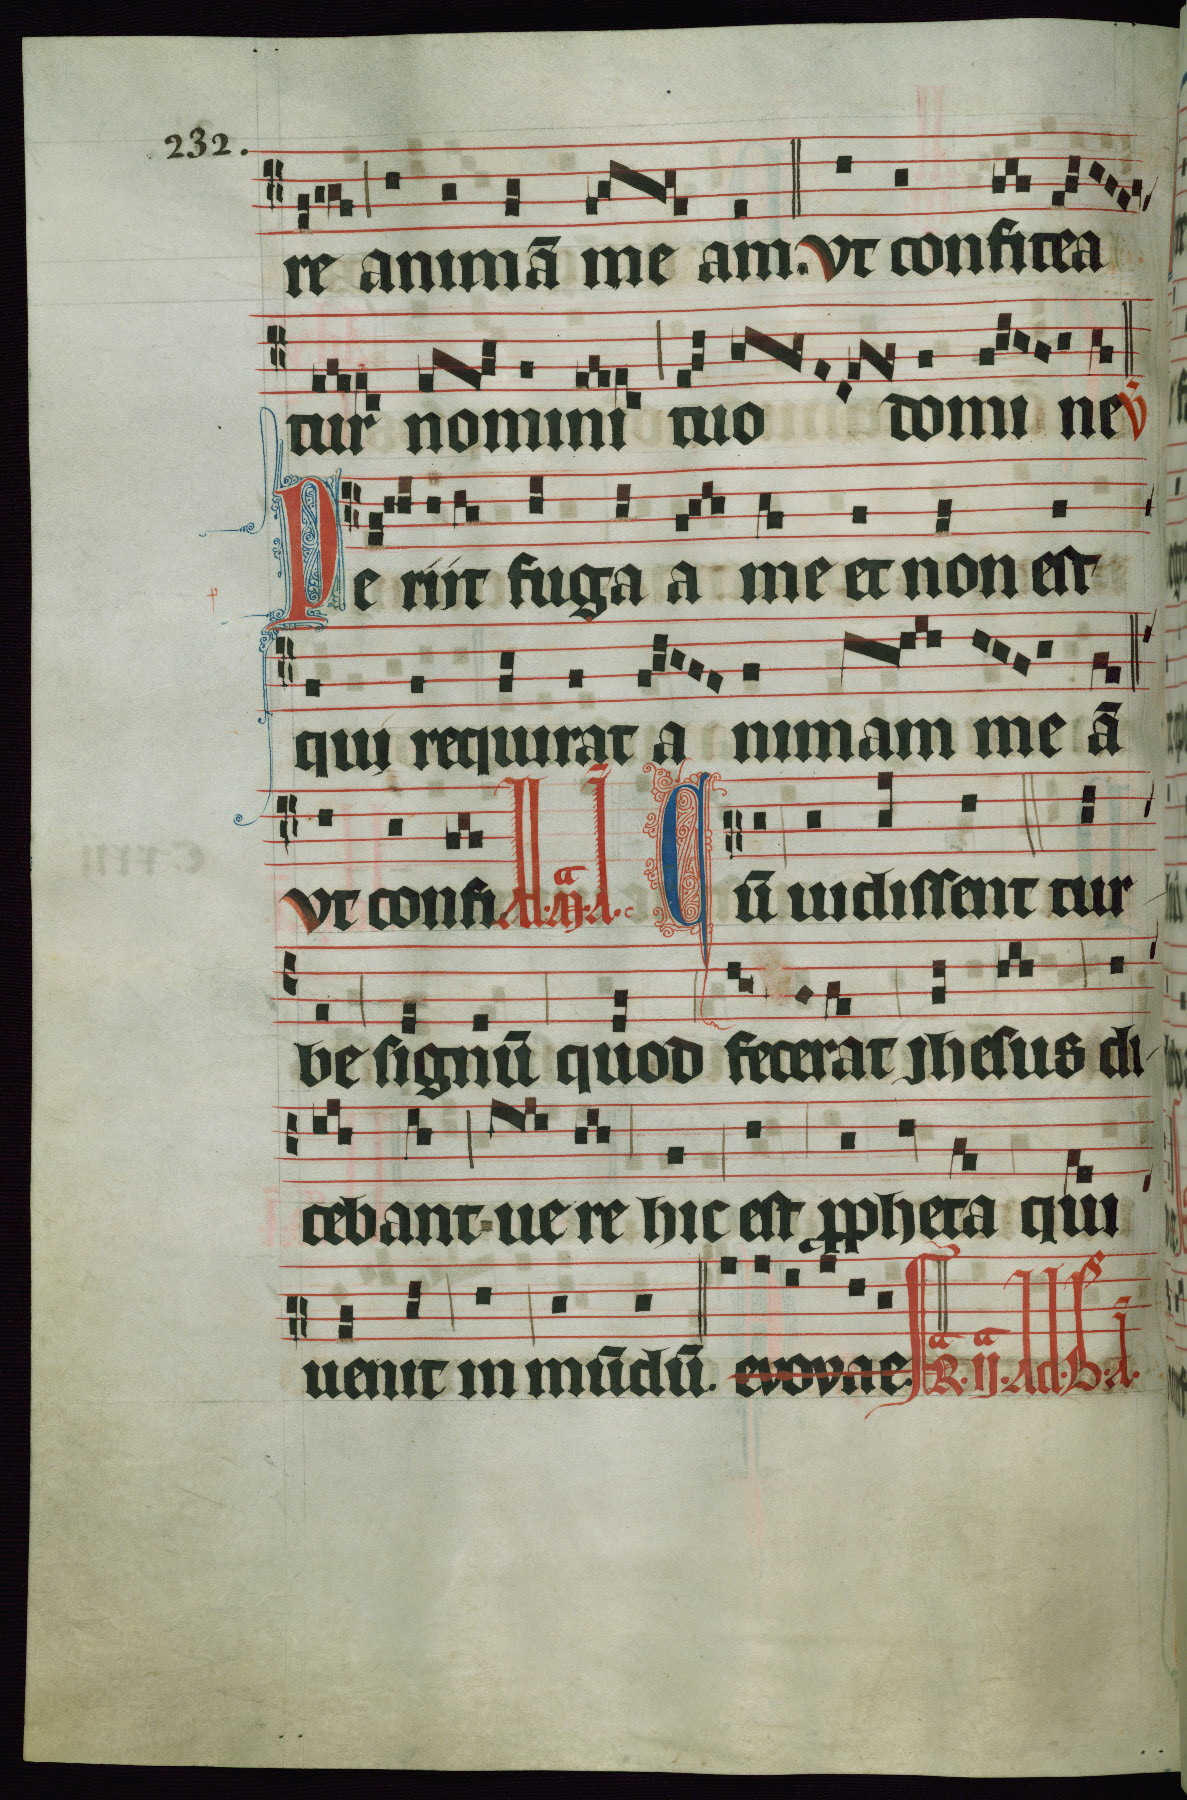 232.
re animā me am. vt confitea
tur nomini tuo domi ne v̄
Pe riit fuga a me et non est
qui requirat a nimam me ā
vt confi Ad
Qū uidissent tur
be signū quod fecerat jhesus di
cebant uere hic est ppheta qui
uenit in mūdū. evovae